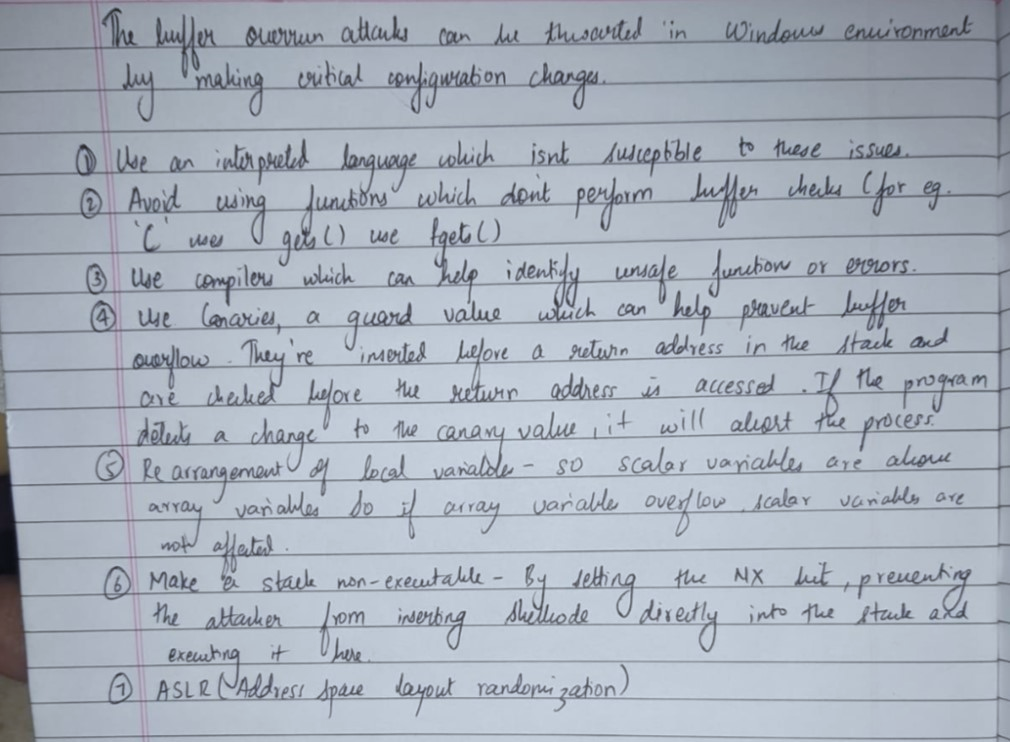 The buffer overrun attacks can be thwarted in Windows environment
by making critical configuration changes.
① Use an interpreted language which isnt susceptible to these issues.
② Avoid using functions which don't perform buffer checks (for eg.
'C' uses gets() use fgets()
③ Use compilers which can help identify unsafe function or errors.
④ Use Canaries, a guard value which can help prevent buffer
overflow. They're inserted before a return address in the stack and
are checked before the return address is accessed. If the program
detects a change to the canary value, it will abort the process.
⑤ Re arrangement of local variables - so scalar variables are above
array variables so if array variable overflow scalar variables are
not affected.
⑥ Make a stack non-executable - By setting the NX bit, preventing
the attacker from inserting shellcode directly into the stack and
executing it here.
⑦ ASLR (Address space layout randomization)